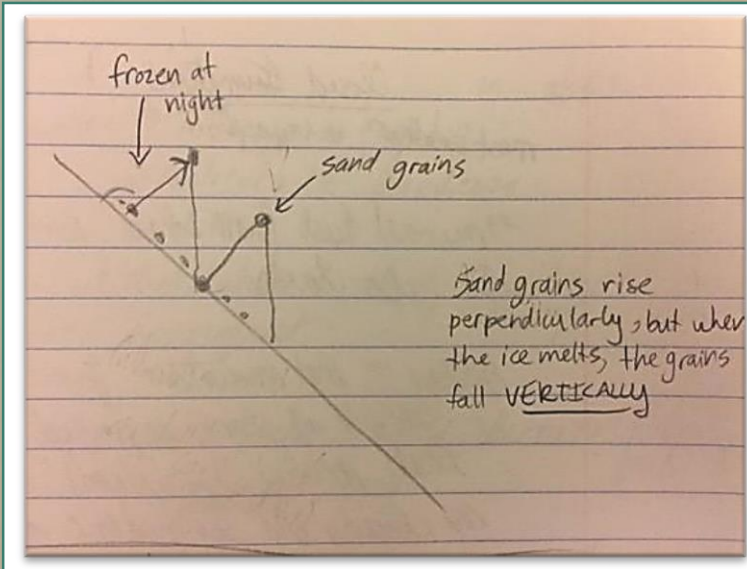 frozen at
night
sand grains
Sand grains rise
perpendicularly, but when
the ice melts, the grains
fall VERTICALLY